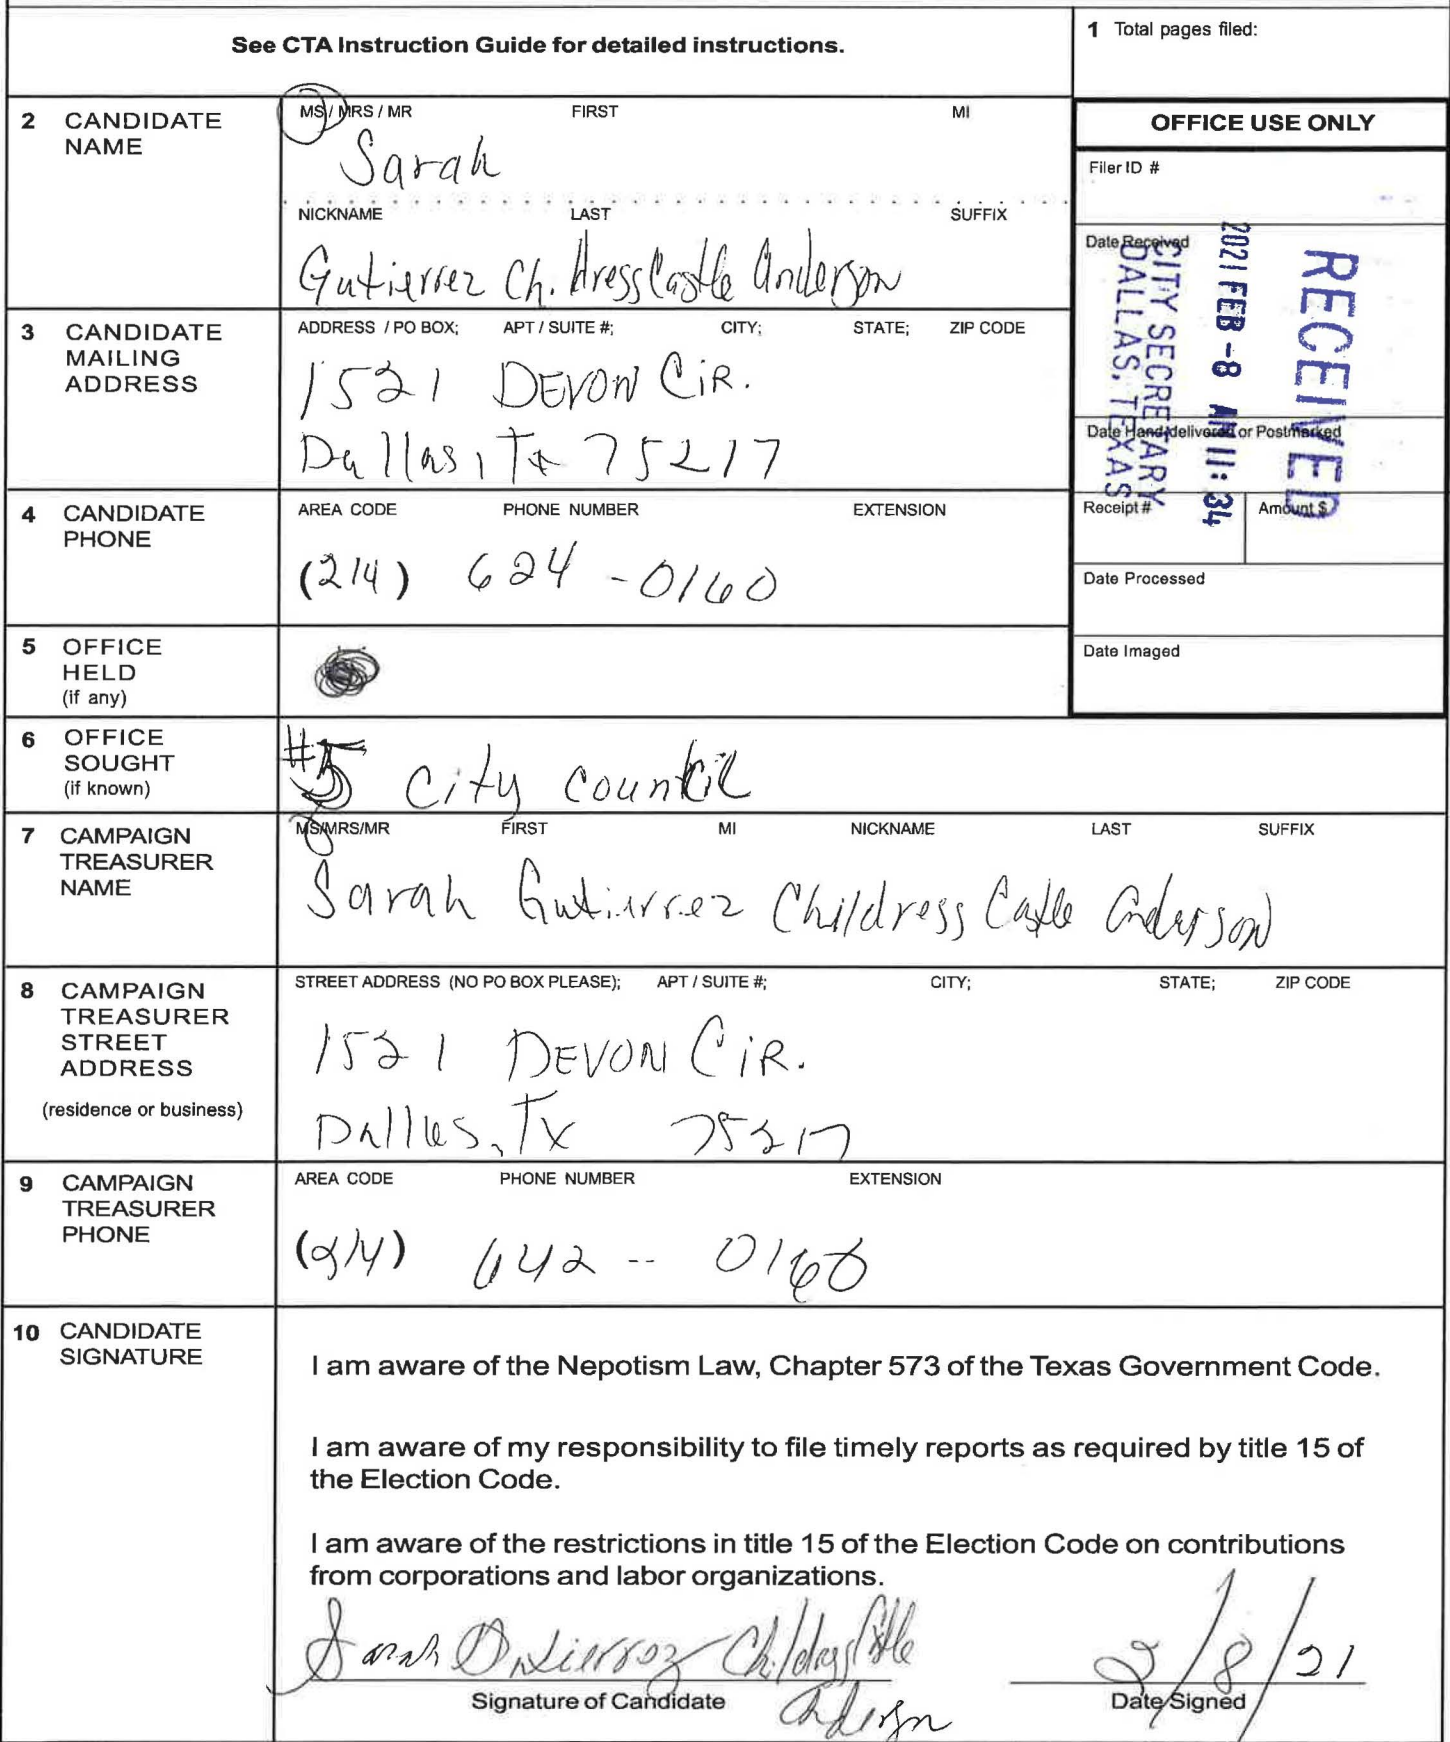 See CTA Instruction Guide for detailed instructions.
1 Total pages filed:
2 CANDIDATE NAME
MS / MRS / MR FIRST MI
Sarah
NICKNAME LAST SUFFIX
Gutierrez Childress Castle Anderson
OFFICE USE ONLY
Filer ID #
Date Received
RECEIVED
2021 FEB -8 AM 11: 34
CITY SECRETARY
DALLAS, TEXAS
Date Hand-delivered or Postmarked
Receipt # Amount $
Date Processed
Date Imaged
3 CANDIDATE MAILING ADDRESS
ADDRESS / PO BOX; APT / SUITE #; CITY; STATE; ZIP CODE
1521 DEVON CiR.
Dallas, Tx 75217
4 CANDIDATE PHONE
AREA CODE PHONE NUMBER EXTENSION
(214) 624 - 0160
5 OFFICE HELD (if any)
6 OFFICE SOUGHT (if known)
#5 City Council
7 CAMPAIGN TREASURER NAME
MS/MRS/MR FIRST MI NICKNAME LAST SUFFIX
Sarah Gutierrez Childress Castle Anderson
8 CAMPAIGN TREASURER STREET ADDRESS
(residence or business)
STREET ADDRESS (NO PO BOX PLEASE); APT / SUITE #; CITY; STATE; ZIP CODE
1521 DEVON CiR.
Dallas, Tx 75217
9 CAMPAIGN TREASURER PHONE
AREA CODE PHONE NUMBER EXTENSION
(214) 642 -- 0160
10 CANDIDATE SIGNATURE
I am aware of the Nepotism Law, Chapter 573 of the Texas Government Code.
I am aware of my responsibility to file timely reports as required by title 15 of
the Election Code.
I am aware of the restrictions in title 15 of the Election Code on contributions
from corporations and labor organizations.
Sarah Gutierrez Childress Castle
Anderson
2/8/21
Signature of Candidate
Date Signed